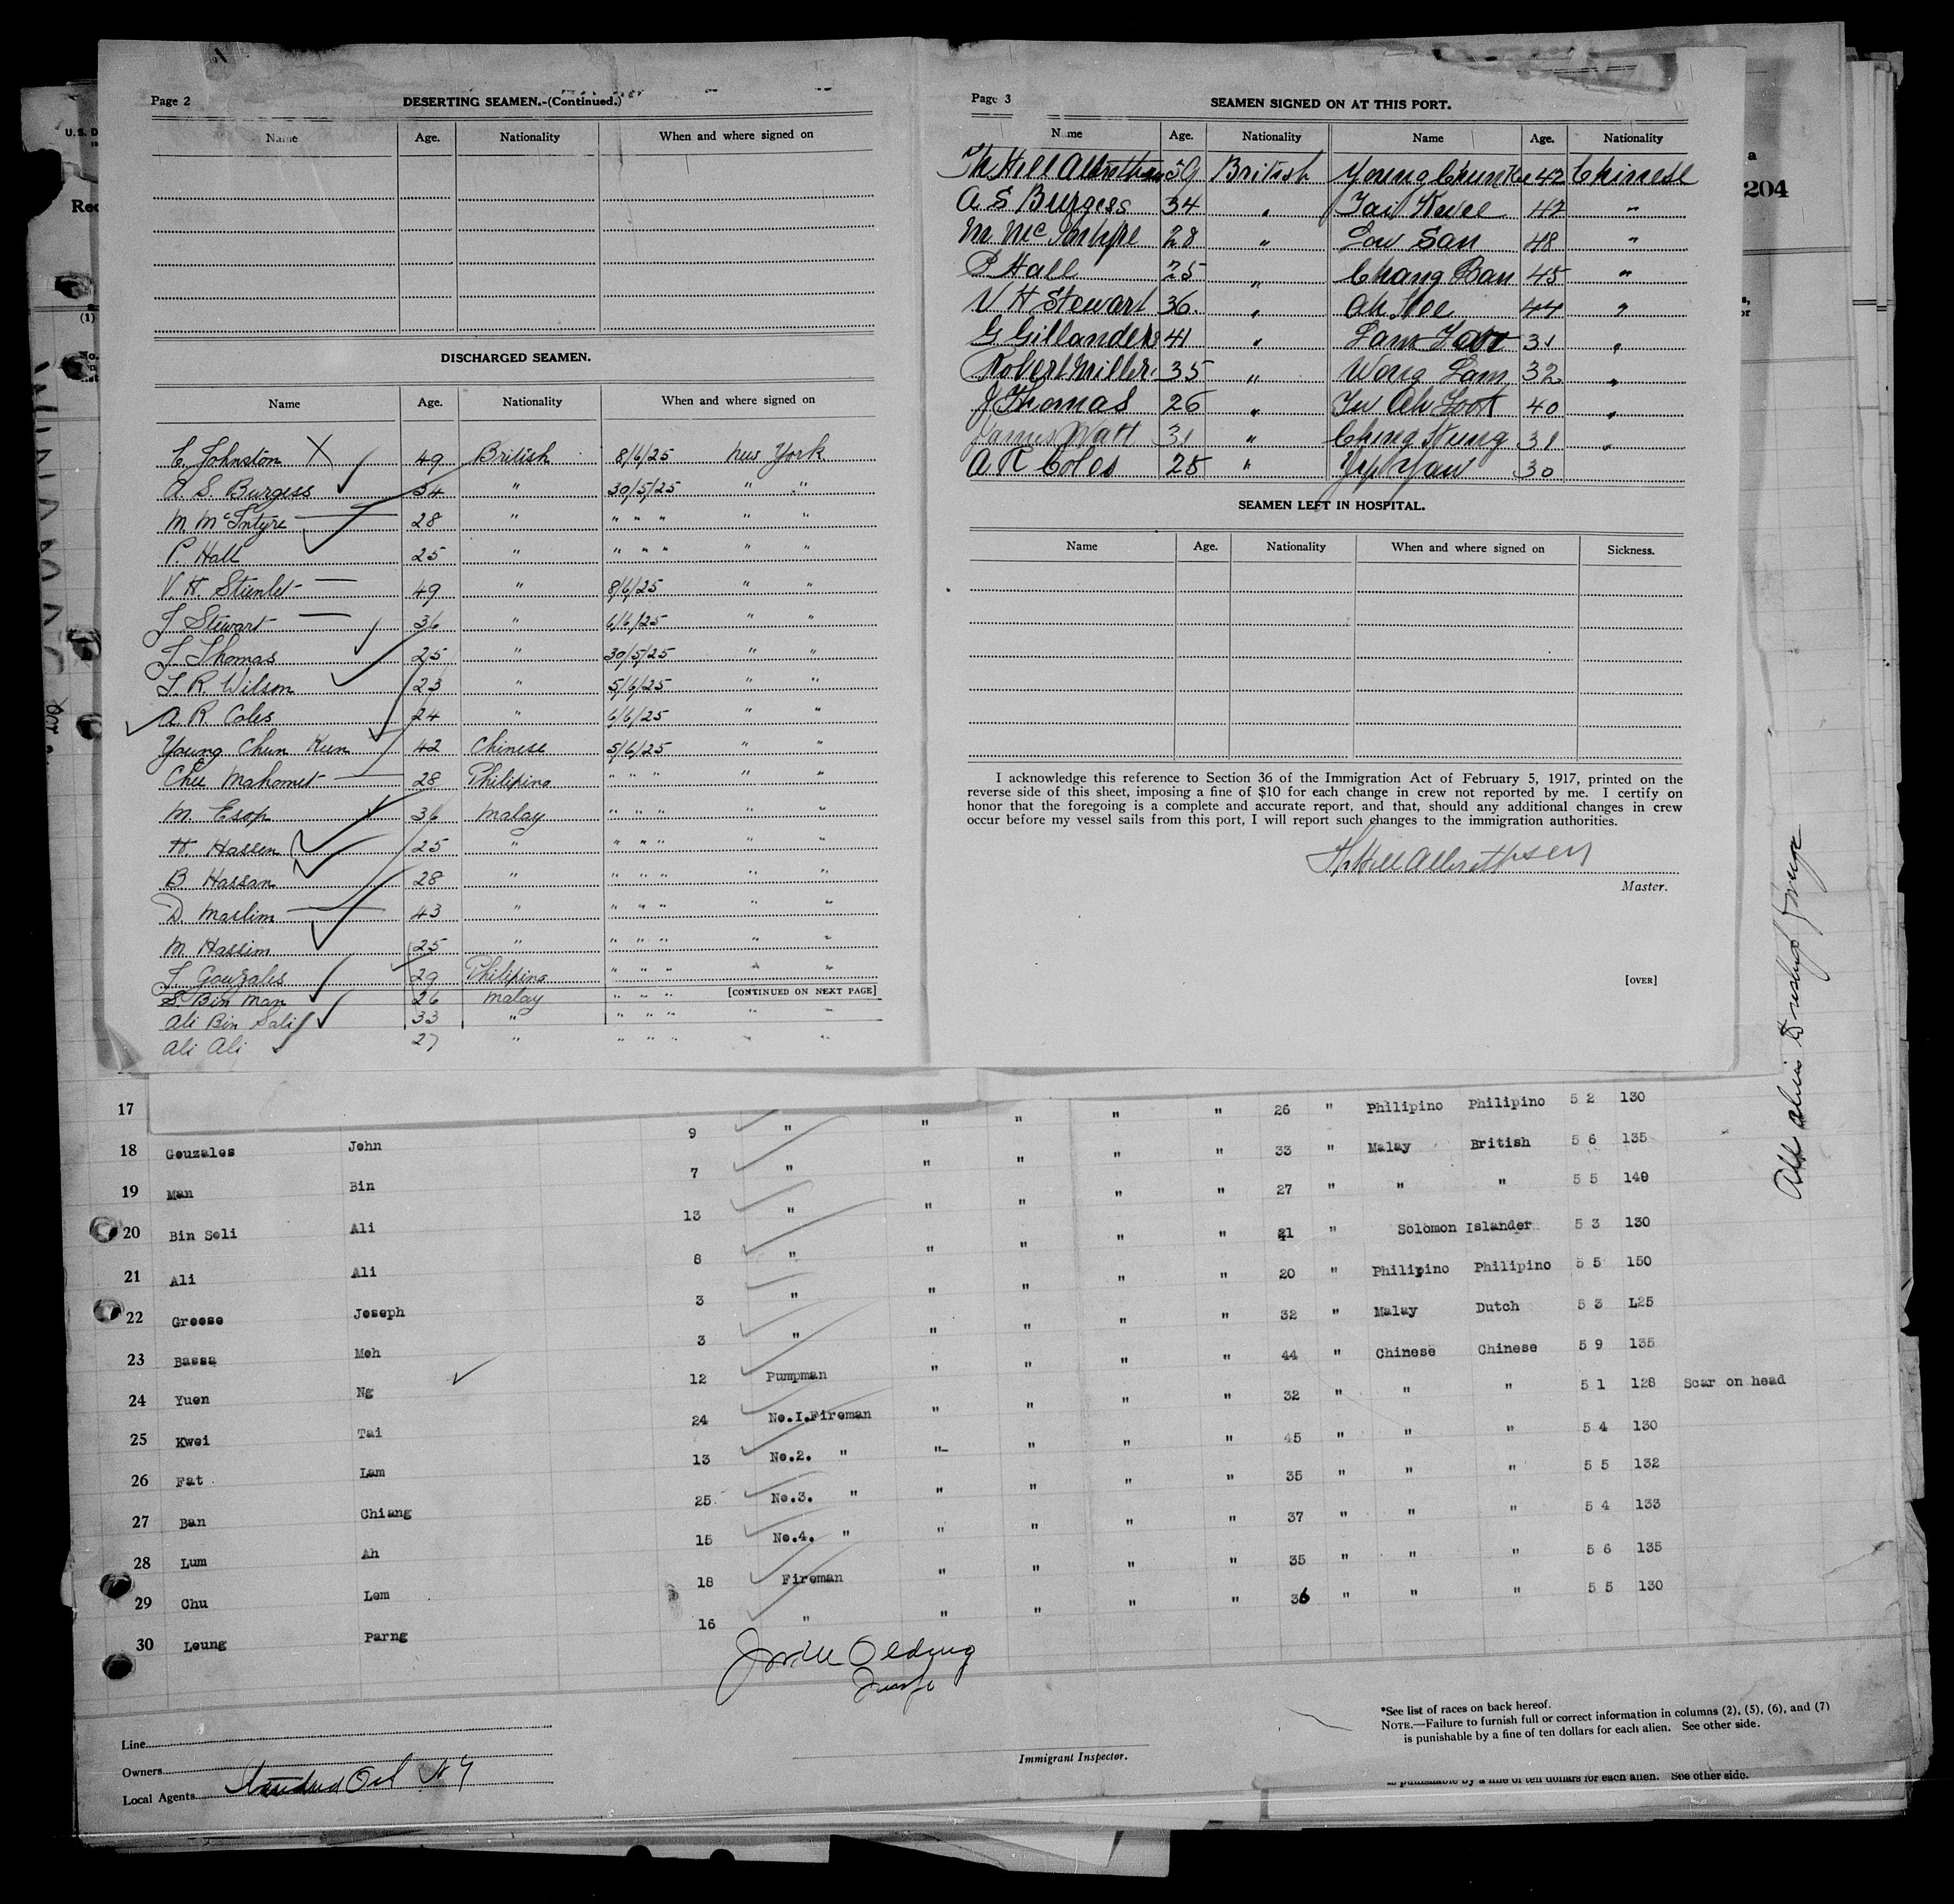 Page 2
DESERTING SEAMEN.-(Continued.)
Name Age. Nationality When and where signed on
DISCHARGED SEAMEN.
Name Age. Nationality When and where signed on
C. Johnston X 49 British 8/6/25 New York
A. S. Burgess 34 " 30/5/25 " "
M. McIntyre 28 " " " " " "
P. Hall 25 " " " " " "
V. H. 49 " 8/6/25 " "
J Stewart 36 " 6/6/25 " "
J Thomas 25 " 30/5/25 " "
J. R. Wilson 23 " 5/6/25 " "
A. R. Coles 24 " 6/6/25 " "
Young Chun Kun 42 Chinese 5/6/25 " "
Chee Mahomet 28 Philipino " " " " "
M. Esop 36 Malay " " " " "
H. Hassen 25 " " " " " "
B Hassan 28 " " " " " "
D. Maslim 43 " " " " " "
M. Hassim 25 " " " " " "
J. Gouzales 29 Philipino " " " " "
S. Bin Man 26 Malay " " " [CONTINUED ON NEXT PAGE]
Ali Bin Sali 33 " " " " " "
Ali Ali 27 " " " " " "
Page 3
SEAMEN SIGNED ON AT THIS PORT.
Name Age. Nationality Name Age. Nationality
39 British Young Chun 42 Chinese
A S Burgess 34 " Tai 42 "
M McIntyre 28 " Low San 48 "
P Hall 25 " Chang Ban 45 "
V H Stewart 36. " Ah 44 "
G Gillanders 41 " Lam 31 "
Robert Miller 35 " Wong Lam 32 "
J Thomas 26 " Ah 40 "
James Watt 31 " Ching 31 "
A R Coles 25 " Yip Yaw 30
SEAMEN LEFT IN HOSPITAL.
Name Age. Nationality When and where signed on Sickness.
I acknowledge this reference to Section 36 of the Immigration Act of February 5, 1917, printed on the
reverse side of this sheet, imposing a fine of $10 for each change in crew not reported by me. I certify on
honor that the foregoing is a complete and accurate report, and that, should any additional changes in crew
occur before my vessel sails from this port, I will report such changes to the immigration authorities.
Master.
[OVER]
204
17 " " " " " 26 " Philipino Philipino 5 2 130
18 Gouzales John 9 " " " " " 33 " Malay British 5 6 135
19 Man Bin 7 " " " " " 27 " " " 5 5 140
20 Bin Soli Ali 13 " " " " " 21 " Solomon Islander 5 3 130
21 Ali Ali 8 " " " " " 20 " Philipino Philipino 5 5 150
22 Greese Joseph 3 " " " " " 32 " Malay Dutch 5 3 L25
23 Bassa Moh 3 " " " " " 44 " Chinese Chinese 5 9 135
24 Yuen Ng 12 Pumpman " " " " 32 " " " 5 1 128 Scar on head
25 Kwei Tai 24 No.I.Fireman " " " " 45 " " " 5 4 130
26 Fat Lam 13 No.2. " " " " " 35 " " " 5 5 132
27 Ban Chiang 25 No.3. " " " " " 37 " " " 5 4 133
28 Lum Ah 15 No.4. " " " " " 35 " " " 5 6 135
29 Chu Lem 18 Fireman " " " " 36 " " " 5 5 130
30 Leung Parng 16 " " " "
Line
Owners
Local Agents Standard Oil N Y
Immigrant Inspector.
*See list of races on back hereof.
NOTE.—Failure to furnish full or correct information in columns (2), (5), (6), and (7)
is punishable by a fine of ten dollars for each alien. See other side.
is punishable by a fine of ten dollars for each alien. See other side.